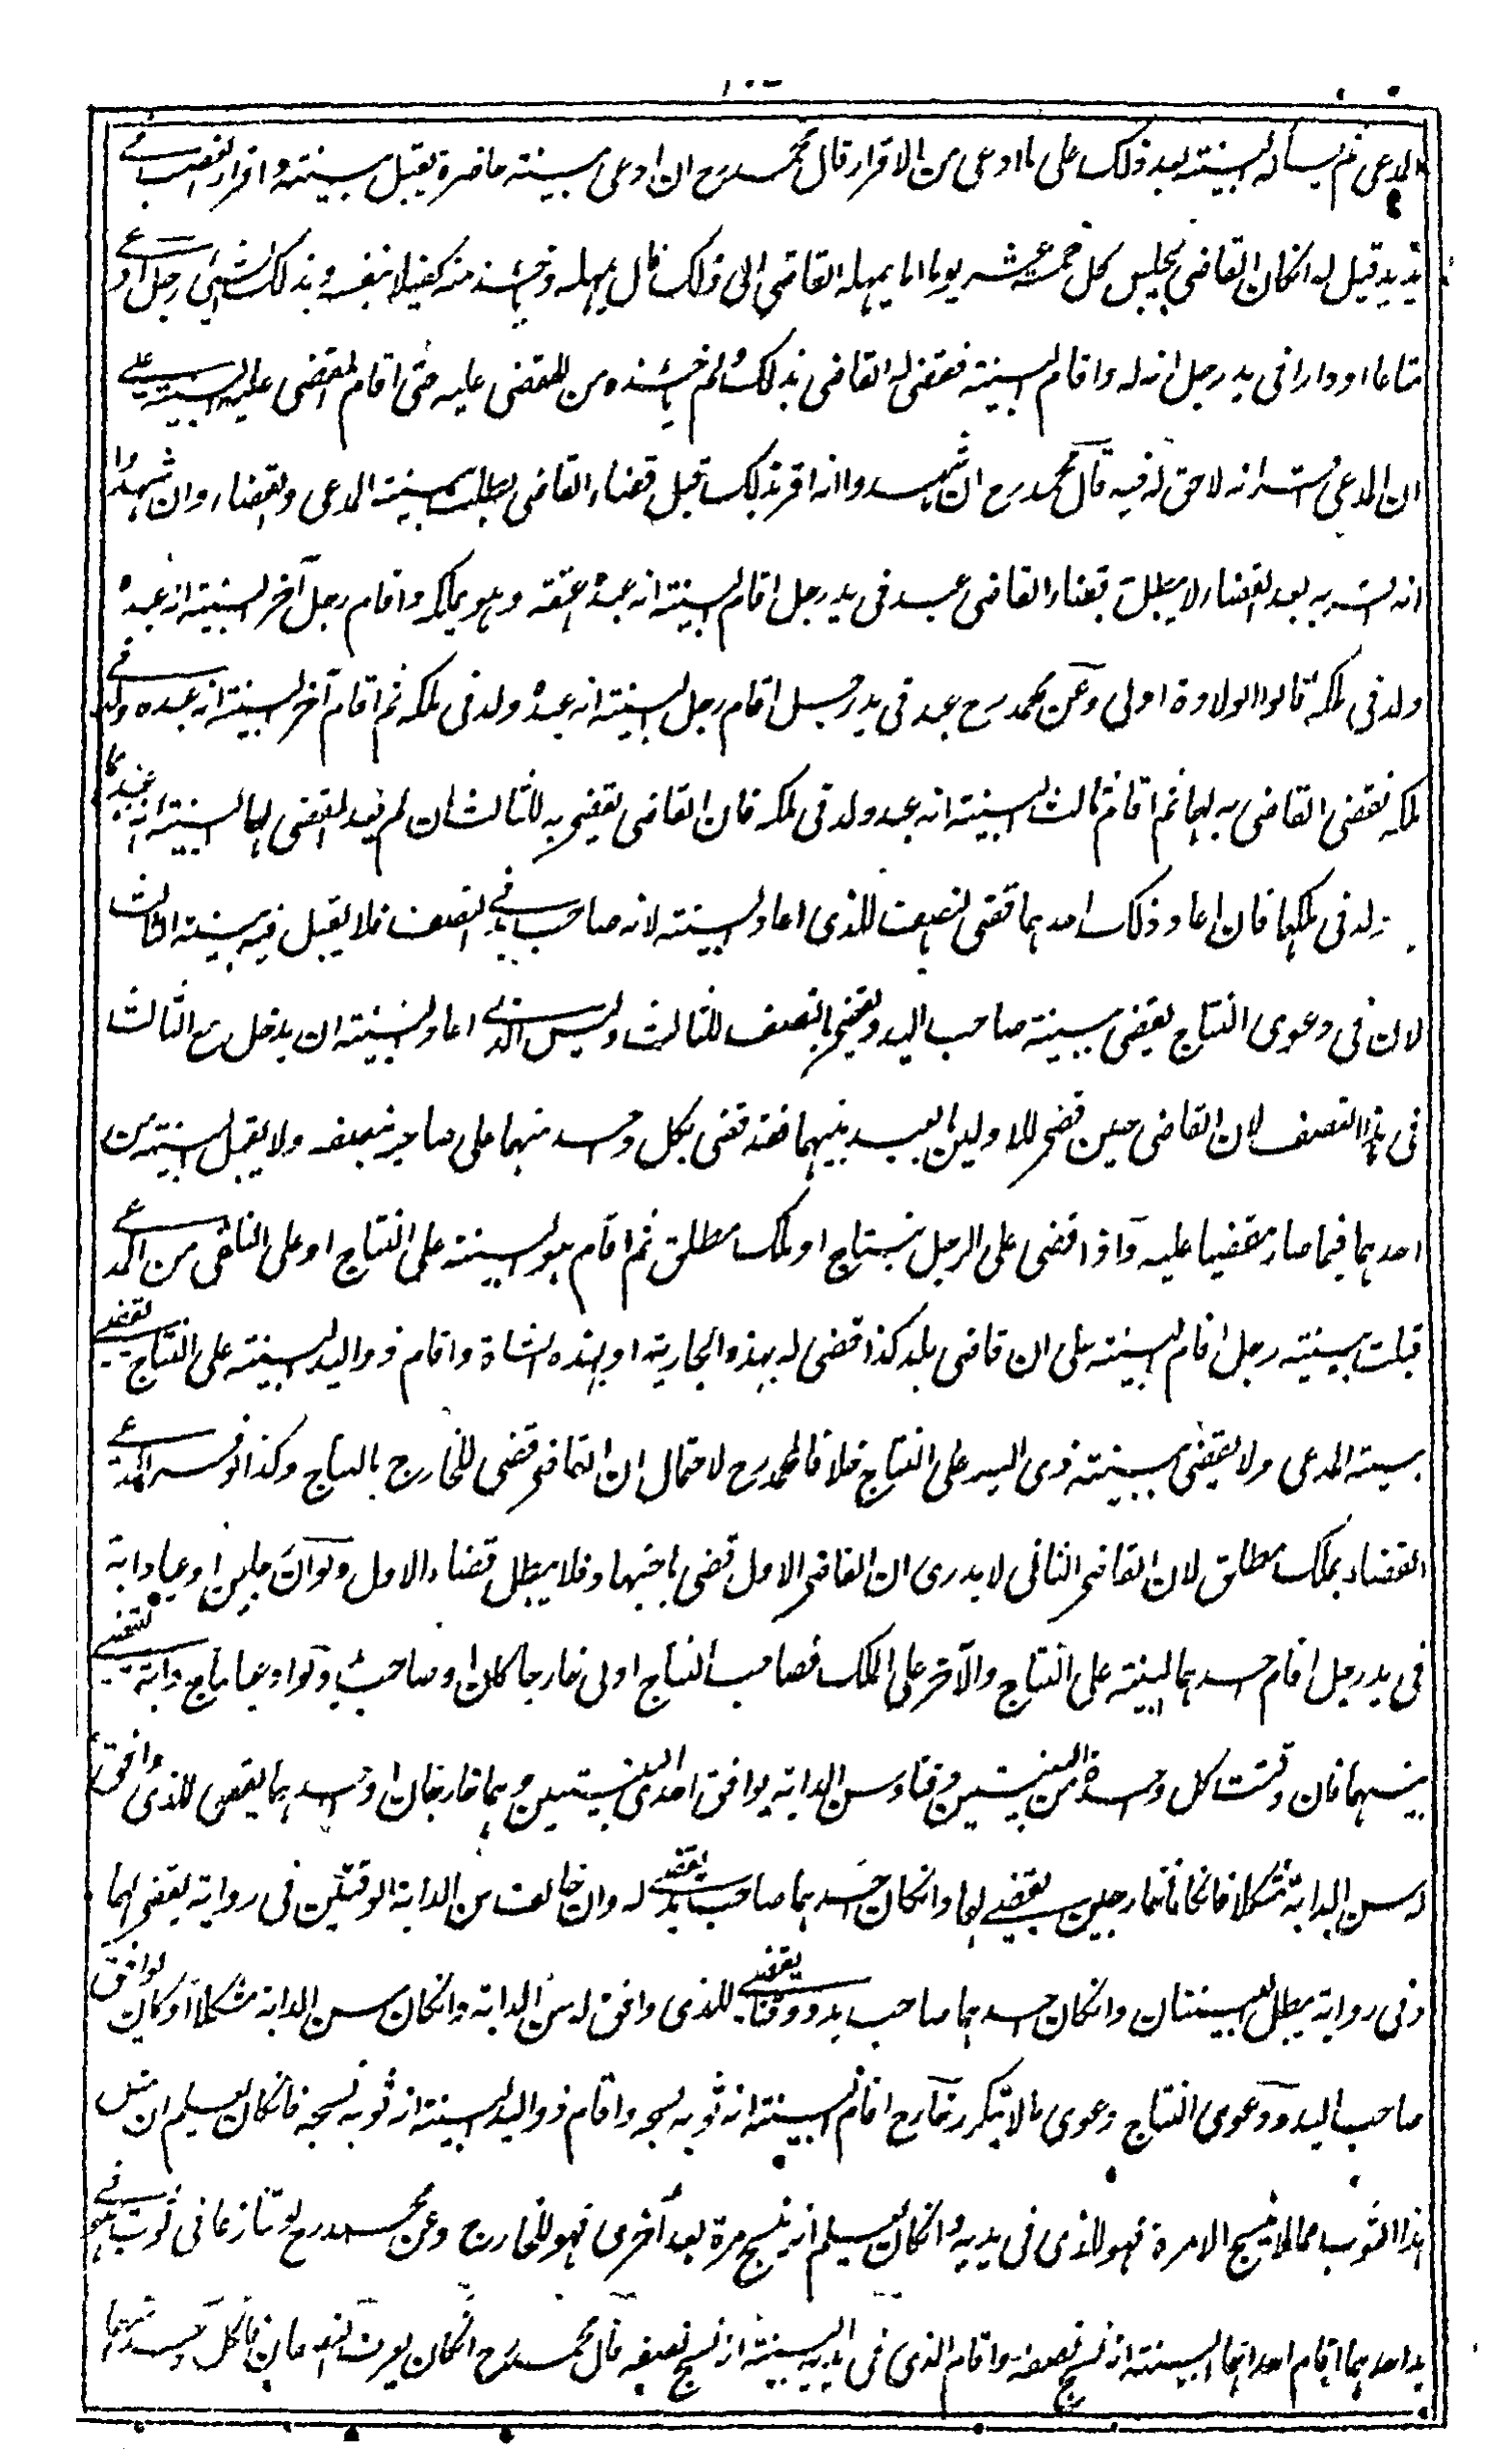 المدعى ثم يسأله البينة بعد ذلك على ما ادعى من الاقرار قال محمد رح ان ادعى بينة حاضرة يقبل بينته واقرار الغصب فى
يديه قيل له ان كان القاضى يجلس كل خمسة عشر يوما ايمهله القاضى الى ذلك قال يمهله وياخذ منه كفيلا بنفسه وبذلك الشئ رجل ادعى
متاعا او دارا فى يد رجل انه له واقام البينة فقضى له القاضى بذلك ولم ياخذه من المقضى عليه حتى اقام المقضى عليه البينة على
ان المدعى اقر انه لا حق له فيه قال محمد رح ان شهدوا انه اقر بذلك قبل قضاء القاضى بطلت بينة المدعى والقضاء وان شهدوا
انه اقر به بعد القضاء لا يبطل قضاء القاضى عبد فى يد رجل اقام البينة انه عبده اعتقه وهو يملكه واقام رجل آخر البينة انه عبده
ولد فى ملكه قالوا الولادة اولى وعن محمد رح عبد فى يد رجل اقام رجل البينة انه عبده ولد فى ملكه ثم اقام آخر البينة انه عبده ولد فى
ملكه فقضى القاضى به لهما ثم اقام ثالث البينة انه عبده ولد فى ملكه فان القاضى يقضى به للثالث ان لم يعد المقضى لهما البينة انه عبدهما
ولد فى ملكهما فان اعاد ذلك احدهما قضى بالنصف للذى اعاد البينة لانه صاحب يد فى النصف فلا يقبل فيه بينة الثالث
لان فى دعوى النتاج يقضى ببينة صاحب اليد ويقضى بالنصف للثالث وليس للذى اعاد البينة ان يدخل مع الثالث
فى هذا النصف لان القاضى حين قضى للاولين بالعبد بينهما فقد قضى لكل واحد منهما على صاحبه بنصفه ولا يقبل البينة من
احدهما فيما صار مقضيا عليه واذا قضى على الرجل بنتاج او ملك مطلق ثم اقام هو البينة على النتاج او على التلقى من المدعى
قبلت بينته رجل اقام البينة على ان قاضى بلد كذا قضى له بهذه الجارية او بهذه الشاة واقام ذو اليد البينة على النتاج يقضى
ببينة المدعى ولا يقضى ببينة ذى اليد على النتاج خلافا لمحمد رح لاحتمال ان القاضى قضى للخارج بالنتاج وكذا لو فسر المدعى
القضاء بملك مطلق لان القاضى الثانى لا يدرى ان القاضى الاول قضى باجتهاد فلا يبطل قضاء الاول ولو ان رجلين ادعيا دابة
فى يد رجل اقام احدهما البينة على النتاج والآخر على الملك فصاحب النتاج اولى خارجا كان او صاحب يد ولو ادعيا نتاج دابة يقضى
بينهما فان وقتت كل واحدة من البينتين وقتا وسن الدابة يوافق احدى البينتين وهما خارجان او احدهما يقضى للذى وافق
له سن الدابة مشكلا فان كانا خارجين يقضى لهما وان كان احدهما صاحب يد يقضى له وان خالف سن الدابة الوقتين فى رواية يقضى لهما
وفى رواية يبطل البينتان وان كان احدهما صاحب يد ووقتا يقضى للذى وافق له سن الدابة وان كان سن الدابة مشكلا او كان يوافق
صاحب اليد ودعوى النتاج دعوى ما لا يتكرر خارج اقام البينة انه ثوبه نسجه واقام ذو اليد البينة انه ثوبه نسجه فان كان يعلم ان مثل
هذا الثوب مما لا ينسج الا مرة فهو للذى فى يديه وان كان يعلم انه ينسج مرة بعد اخرى فهو للخارج وعن محمد رح لو تنازعا فى ثوب هو فى
يد احدهما اقام احدهما البينة انه نسج نصفه واقام الذى فى يديه البينة انه نسج نصفه قال محمد رح ان كان يعرف النصفان فلكل واحد منهما